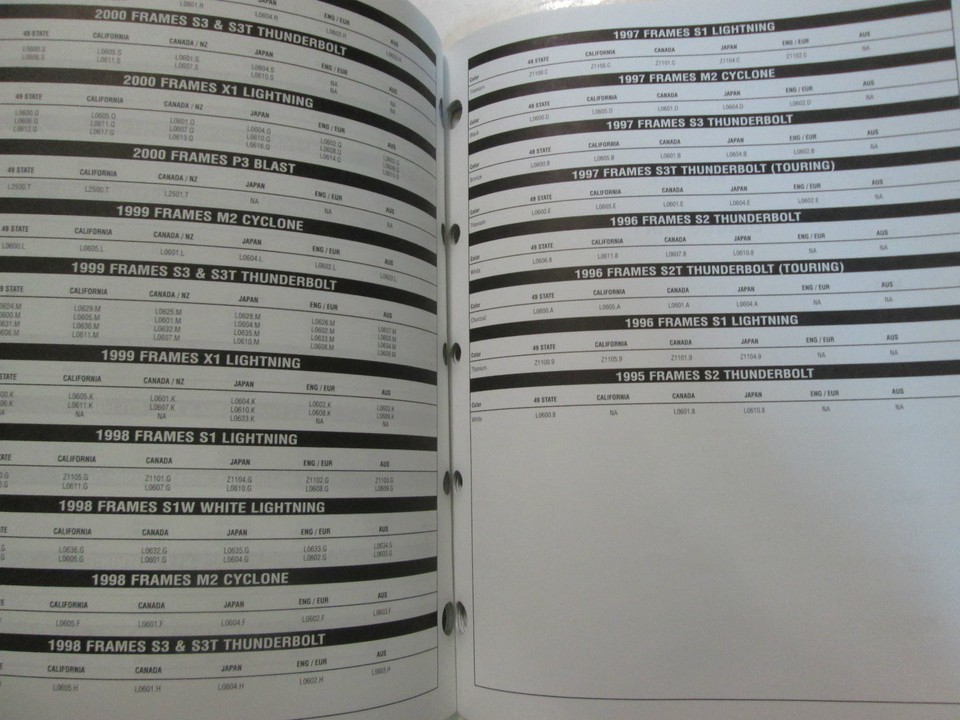 L0601.H L0604.H ENG / EUR
2000 FRAMES S3 & S3T THUNDERBOLT
49 STATE CALIFORNIA CANADA / NZ JAPAN AUS
L0600.S L0605.S L0601.S L0604.S NA
L0606.S L0611.S L0607.S L0610.S NA
2000 FRAMES X1 LIGHTNING
49 STATE CALIFORNIA CANADA / NZ JAPAN ENG / EUR
L0600.Q L0605.Q L0601.Q L0604.Q L0602.Q
L0606.Q L0611.Q L0607.Q L0610.Q L0608.Q
L0612.Q L0617.Q L0613.Q L0616.Q L0614.Q
2000 FRAMES P3 BLAST
49 STATE CALIFORNIA CANADA / NZ JAPAN ENG / EUR AUS
L2500.T L2500.T L2501.T NA NA NA
1999 FRAMES M2 CYCLONE
49 STATE CALIFORNIA CANADA / NZ JAPAN ENG / EUR AUS
L0600.L L0605.L L0601.L L0604.L L0602.L L0603.L
1999 FRAMES S3 & S3T THUNDERBOLT
STATE CALIFORNIA CANADA / NZ JAPAN ENG / EUR AUS
L0629.M L0625.M L0628.M L0626.M L0627.M
L0605.M L0601.M L0604.M L0602.M L0603.M
L0636.M L0632.M L0635.M L0633.M L0634.M
L0611.M L0607.M L0610.M L0608.M L0609.M
1999 FRAMES X1 LIGHTNING
STATE CALIFORNIA CANADA / NZ JAPAN ENG / EUR AUS
L0605.K L0601.K L0604.K L0602.K L0603.K
L0611.K L0607.K L0610.K L0608.K L0609.K
NA NA NA L0633.K NA NA
1998 FRAMES S1 LIGHTNING
CALIFORNIA CANADA JAPAN ENG / EUR AUS
Z1105.G Z1101.G Z1104.G Z1102.G Z1103.G
L0611.G L0607.G L0610.G L0608.G L0609.G
1998 FRAMES S1W WHITE LIGHTNING
CALIFORNIA CANADA JAPAN ENG / EUR AUS
L0636.G L0632.G L0635.G L0633.G L0634.G
L0605.G L0601.G L0604.G L0602.G L0603.G
1998 FRAMES M2 CYCLONE
CALIFORNIA CANADA JAPAN ENG / EUR AUS
L0605.F L0601.F L0604.F L0602.F L0603.F
1998 FRAMES S3 & S3T THUNDERBOLT
CALIFORNIA CANADA JAPAN ENG / EUR AUS
L0605.H L0601.H L0604.H L0602.H L0603.H
1997 FRAMES S1 LIGHTNING
Color 49 STATE CALIFORNIA CANADA JAPAN ENG / EUR AUS
Titanium Z1100.C Z1105.C Z1101.C Z1104.C Z1102.C NA
1997 FRAMES M2 CYCLONE
Color 49 STATE CALIFORNIA CANADA JAPAN ENG / EUR AUS
Black L0600.D L0605.D L0601.D L0604.D L0602.D NA
1997 FRAMES S3 THUNDERBOLT
Color 49 STATE CALIFORNIA CANADA JAPAN ENG / EUR AUS
Bronze L0600.B L0605.B L0601.B L0604.B L0602.B NA
1997 FRAMES S3T THUNDERBOLT (TOURING)
Color 49 STATE CALIFORNIA CANADA JAPAN ENG / EUR AUS
Titanium L0600.E L0605.E L0601.E L0604.E L0602.E NA
1996 FRAMES S2 THUNDERBOLT
Color 49 STATE CALIFORNIA CANADA JAPAN ENG / EUR AUS
White L0606.B L0611.B L0607.B L0610.B NA NA
1996 FRAMES S2T THUNDERBOLT (TOURING)
Color 49 STATE CALIFORNIA CANADA JAPAN ENG / EUR AUS
Charcoal L0600.A L0605.A L0601.A L0604.A NA NA
1996 FRAMES S1 LIGHTNING
Color 49 STATE CALIFORNIA CANADA JAPAN ENG / EUR AUS
Titanium Z1100.9 Z1105.9 Z1101.9 Z1104.9 NA NA
1995 FRAMES S2 THUNDERBOLT
Color 49 STATE CALIFORNIA CANADA JAPAN ENG / EUR AUS
White L0600.B NA L0601.B L0610.B NA NA